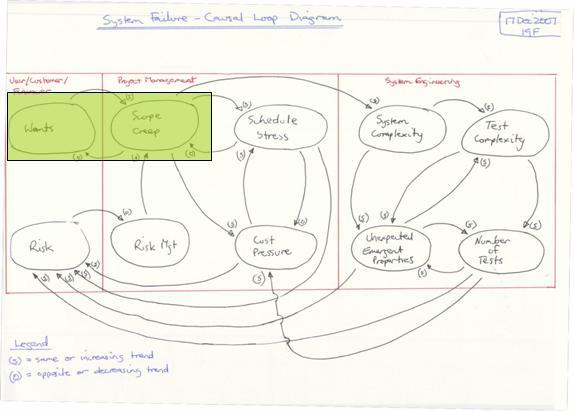 System Failure - Causal Loop Diagram
17 Dec 2007
User/Customer/
Project Management
System Engineering
Wants
Scope
Creep
Schedule
Stress
System
Complexity
Test
Complexity
Risk
Risk Mgt
Cost
Pressure
Unexpected
Emergent
Properties
Number
of
Tests
(s)
(o)
Legend
(s) = same or increasing trend
(o) = opposite or decreasing trend